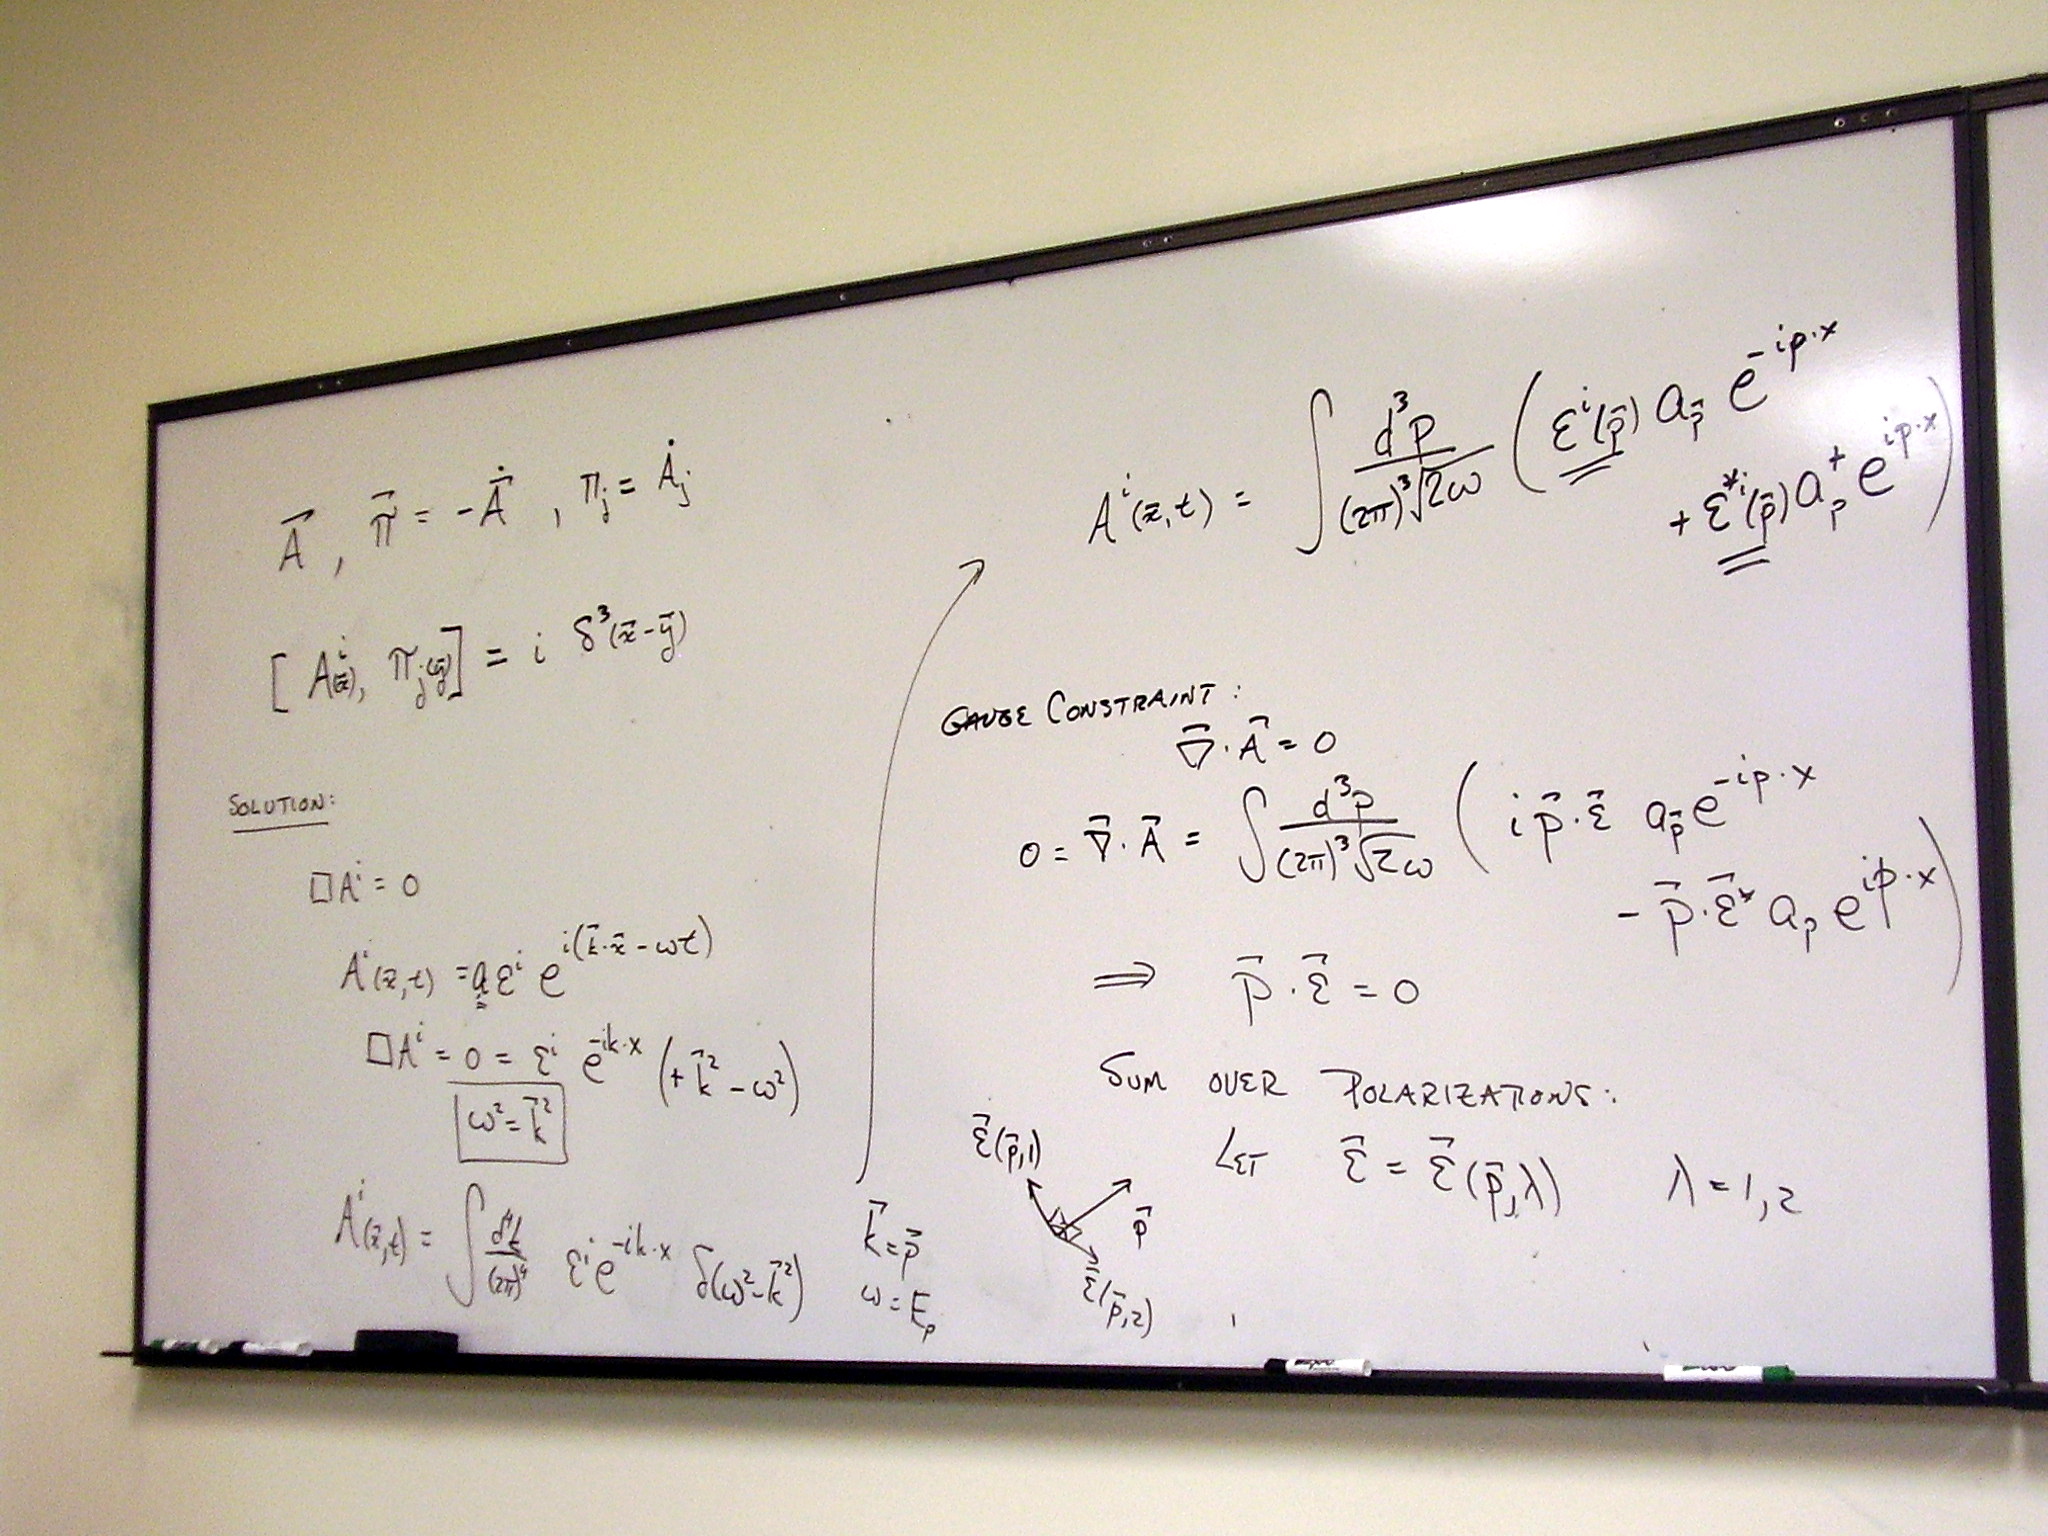 A⃗ , π⃗ = -A⃗̇ , π_j = Ȧ_j
[ A^i(x⃗), π_j(y⃗) ] = i δ³(x⃗-y⃗)
SOLUTION:
□A^i = 0
A^i(x⃗,t) = a ε^i e^{i(k⃗·x⃗ - ωt)}
□A^i = 0 = ε^i e^{-ik·x} (+k⃗² - ω²)
ω² = k⃗²
A^i(x⃗,t) = ∫ d⁴k/(2π)⁴ ε^i e^{-ik·x} δ(ω²-k⃗²)
k⃗ = p⃗
ω = E_p
A^i(x⃗,t) = ∫ d³p/((2π)³√2ω) ( ε^i(p⃗) a_p⃗ e^{-ip·x}
+ ε*^i(p⃗) a_p^+ e^{ip·x} )
GAUGE CONSTRAINT:
∇⃗·A⃗ = 0
0 = ∇⃗·A⃗ = ∫ d³p/((2π)³√2ω) ( i p⃗·ε⃗ a_p⃗ e^{-ip·x}
- p⃗·ε⃗* a_p e^{ip·x} )
⟹ p⃗·ε⃗ = 0
SUM OVER POLARIZATIONS:
LET ε⃗ = ε⃗(p⃗,λ) λ = 1,2
ε⃗(p⃗,1)
p⃗
ε⃗(p⃗,2)